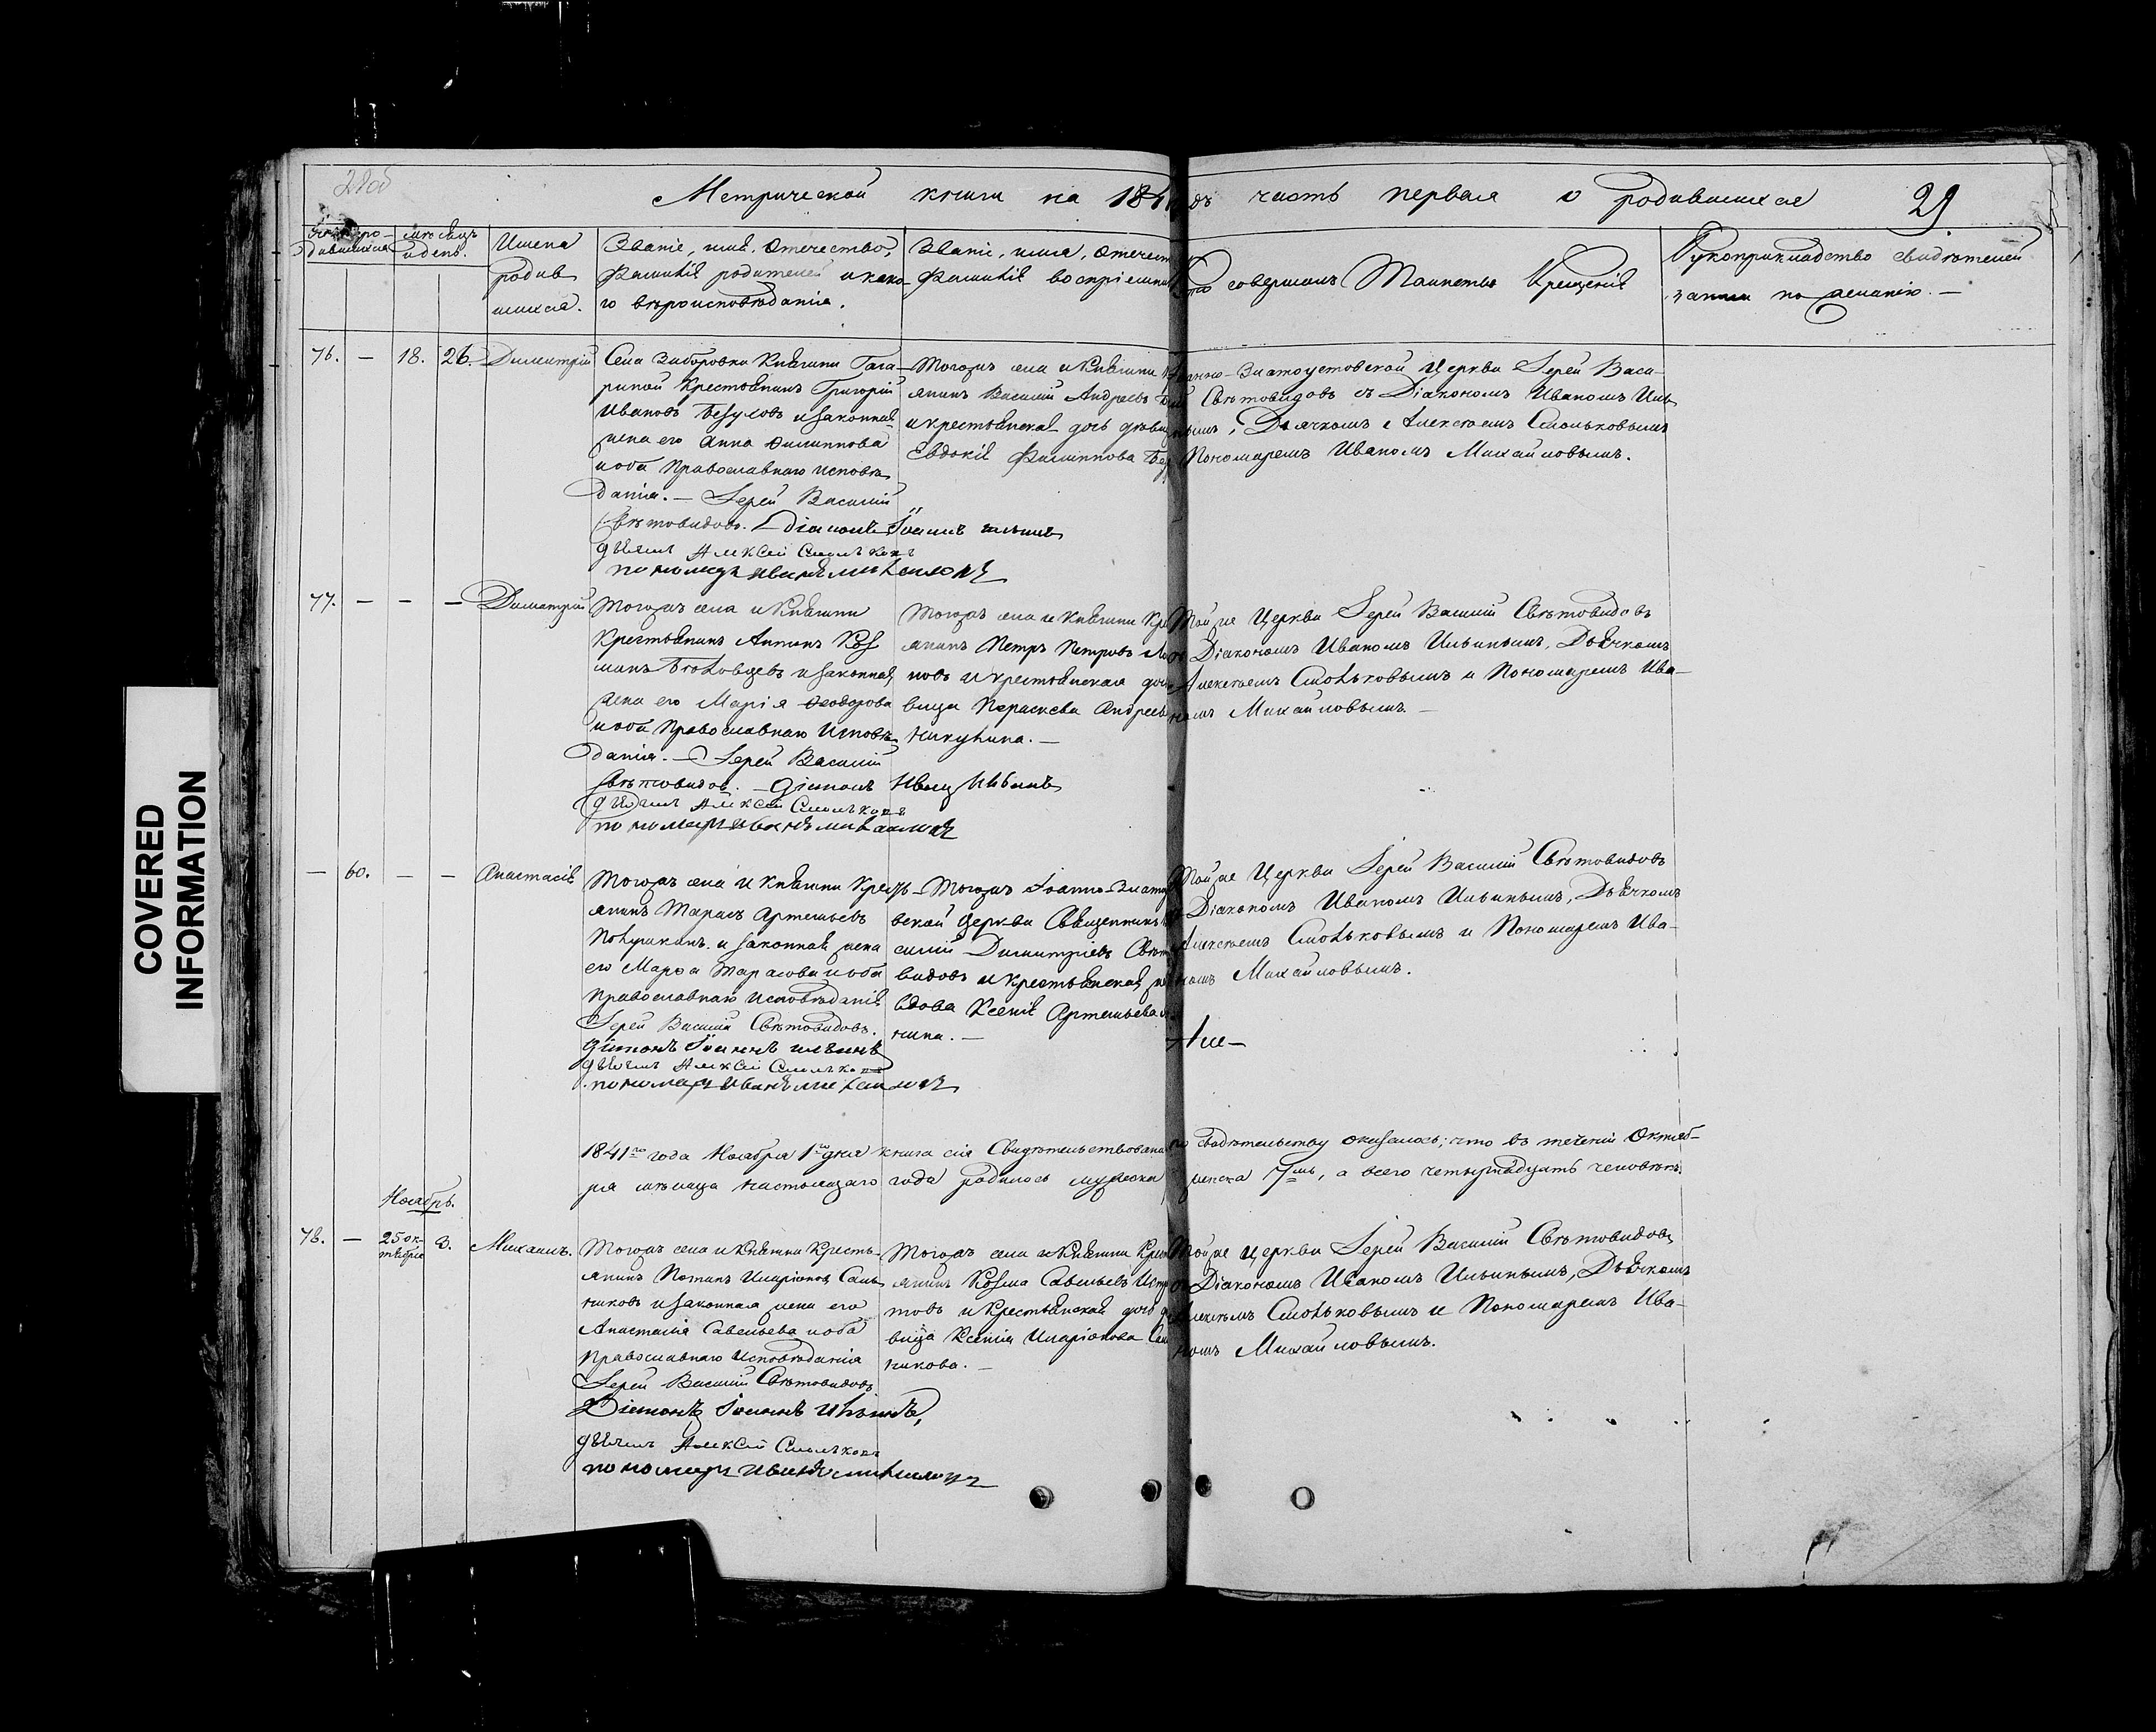 28об
Метрической книги на 184 дъ часть первая о родившихся 29
мѣсяцъ
и день.
Имена
родив
шихся.
Званіе, имя, Отечество,
Фамилія родителей и како-
го вѣроисповѣданія.
Званіе, имя, Отечест
Фамилія воспріемни
совершалъ Таинство Крещенія
Рукоприкладство свидѣтелей
записи по желанію. —
76. — 18. 26. Димитрій
Села Заборовки Княгини Гага-
риной Крестьянинъ Григорій
Ивановъ Безуловъ и законная
жена его Анна Филиппова
иоба Православнаго исповѣ
данія. — Іерей Василій
Свѣтовидовъ. Діаконъ Іоаннъ Ильинъ
дьячекъ Алексей Смольковъ
пономарь иванъ михаиловъ
Тогожъ села и Княгини
янинъ Василій Андреевъ
и крестьянская дочь дѣви
Евдокія Филиппова Без
анно-Златоустовской Церкви Іерей Васи-
лій Свѣтовидовъ съ Діакономъ Иваномъ Иль
инымъ, Дьячкомъ Алексѣемъ Смольковымъ
Пономаремъ Иваномъ Михайловымъ.
77. — — — Димитрій
Тогожъ села и Княгини
Крестьянинъ Антонъ Коз
минъ и законная
жена его Марія Феодорова
иоба Православнаго Исповѣ
данія. — Іерей Василій
Свѣтовидовъ. — Діаконъ Иванъ Ильинъ
дьячекъ Алексей Смольковъ
пономарь иванъ михаиловъ
Тогожъ села и Княгини Кре
янинъ Петръ Петровъ
новъ и крестьянская доч
вица Параскева Андреев
Никулина. —
Тойже Церкви Іерей Василій Свѣтовидовъ
съ Діакономъ Иваномъ Ильинымъ, Дьячкомъ
Алексѣемъ Смольковымъ и Пономаремъ Ива-
номъ Михайловымъ —
— 60. — — Анастасія
Тогожъ села и Княгини Кресть-
янинъ Тарасъ Артемьевъ
и законная жена
его Марфа Тарасова иоба
Православнаго Исповѣданія
Іерей Василій Свѣтовидовъ.
діаконъ Іоаннъ ильинъ
дьячекъ Алексей Смольковъ
пономарь иванъ михаиловъ
Тогожъ Іоанно-Злато
вской Церкви Священникъ
силій Димитріевъ Свѣт
видовъ и Крестьянская
вдова Ксенія Артемьева
нина. —
Тойже Церкви Іерей Василій Свѣтовидовъ
Діакономъ Иваномъ Ильинымъ, Дьячкомъ
Алексѣемъ Смольковымъ и Пономаремъ Ива-
номъ Михайловымъ.
Але-
1841го года Ноября 1го дня книга сія Свидѣтельствована по свидѣтельству оказалось; что въ теченіи Октяб-
ря мѣсяца настоящаго года родилось мужеска женска 7мь, а всего четырнадцать человѣкъ.
Ноябрь.
78. — 25 ок-
тября 3. Михаилъ.
Тогожъ села и Княгини Кресть-
янинъ Потапъ Иларіоновъ
никовъ и законная жена его
Анастасія Савельева иоба
Православнаго Исповѣданія
Іерей Василій Свѣтовидовъ
Діаконъ Іоаннъ Ильинъ,
дьячекъ Алексей Смольковъ
пономарь иванъ михаиловъ
Тогожъ села и Княгини Крес
янинъ Козма Савельевъ
товъ и Крестьянская дочь д
вица Ксенія Иларіонова
никова. —
Тойже Церкви Іерей Василій Свѣтовидовъ
съ Діакономъ Иваномъ Ильинымъ, Дьячкомъ
Алексѣемъ Смольковымъ и Пономаремъ Ива-
номъ Михайловымъ.
COVERED
INFORMATION